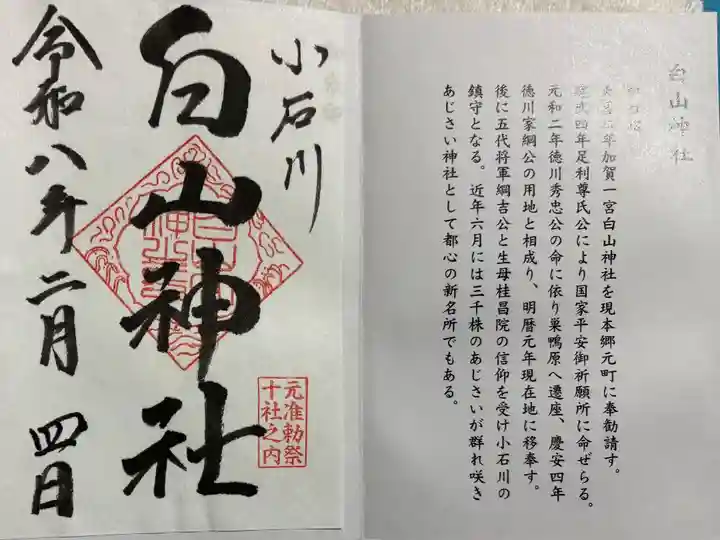 白山神社
年加賀一宮白山神社を現本郷元町に奉勧請す。
武四年足利尊氏公により国家平安御祈願所に命ぜらる。
元和二年徳川秀忠公の命に依り巣鴨原へ遷座、慶安四年
徳川家綱公の用地と相成り、明暦元年現在地に移奉す。
後に五代将軍綱吉公と生母桂昌院の信仰を受け小石川の
鎮守となる。近年六月には三千株のあじさいが群れ咲き
あじさい神社として都心の新名所でもある。
小石川
白山神社
元准勅祭
十社之内
令和八年二月四日